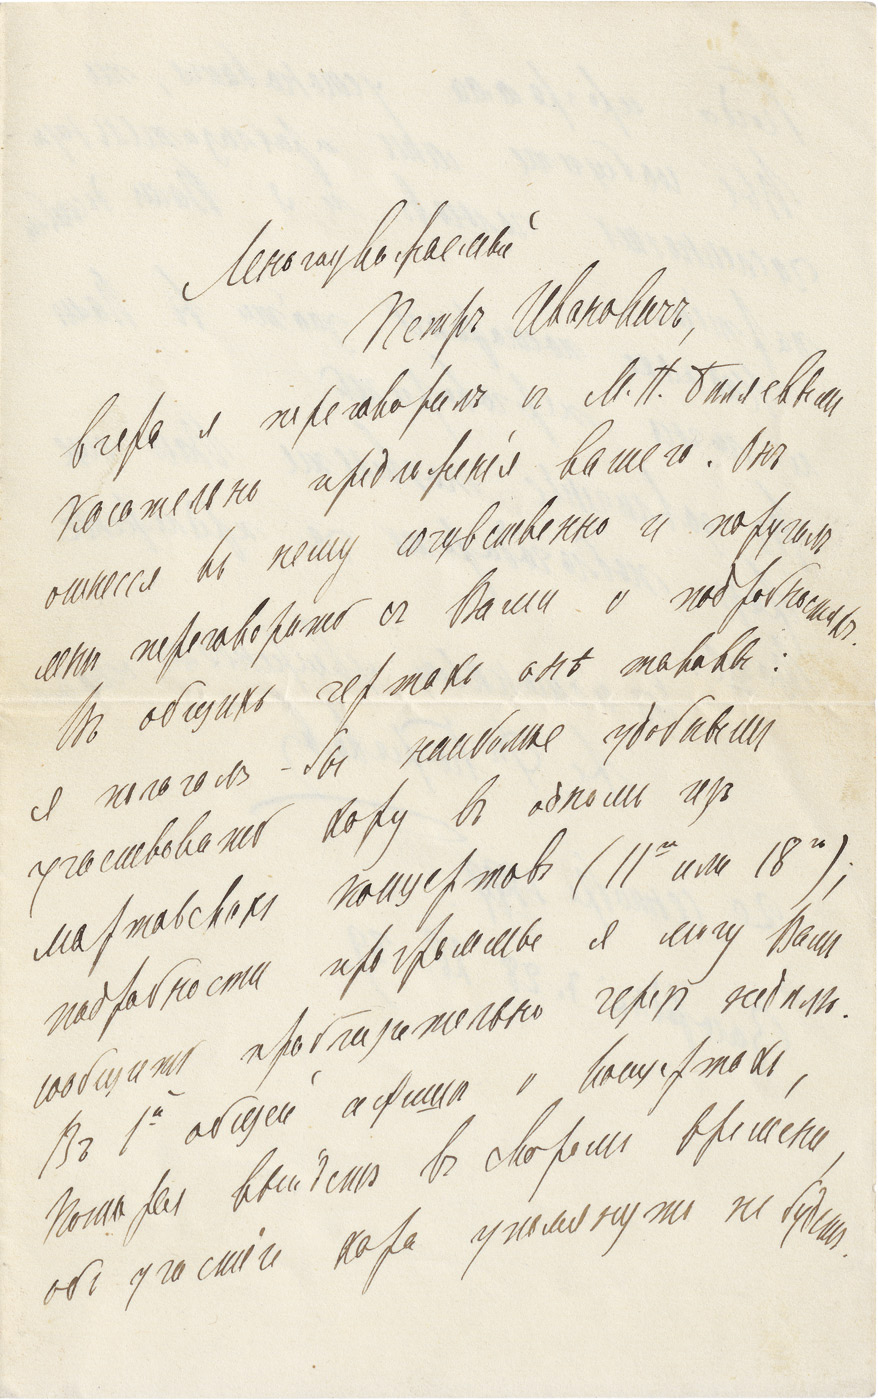 Многоуважаемый
Петръ Ивановичъ,
вчера я переговорилъ съ М. П. Бѣляевымъ
касательно предложенія вашего. Онъ
отнесся къ нему сочувственно и поручилъ
мнѣ переговорить съ Вами о подробностяхъ.
Въ общихъ чертахъ онѣ таковы:
я полагалъ-бы наиболѣе удобнымъ
участвовать хору въ одномъ изъ
мартовскихъ концертовъ (11го или 18го);
подробности программы я могу Вамъ
сообщить приблизительно черезъ недѣлю.
Въ 1й общей афишѣ о концертахъ,
которая выйдетъ въ скоромъ времени,
объ участіи хора упомянуто не будетъ.